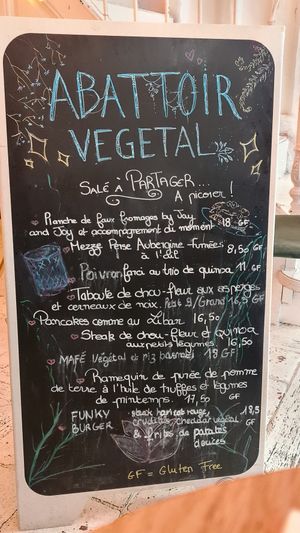 ABATTOIR
VEGETAL
SALÉ À PARTAGER...
A picorer !
Planche de faux fromages by Jay
and Joy et accompagnement du moment 18 GF
Mezze Aubergine fumées 8,50 GF
à l'ail
Poivron farci au trio de quinoa 11 GF
Taboulé de chou-fleur aux asperges
et cerneaux de noix Petit 9/Grand 16,5 GF
Pancakes comme au Liban 16,50
Steak de chou-fleur et quinoa
aux petits légumes 16,50
MAFÉ végétal et riz basmati 18 GF
Ramequin de purée de pomme
de terre à l'huile de truffes et légumes
de printemps. 17,50 GF
FUNKY steack haricots rouge, 18,5
BURGER crudités, cheddar végétal GF
& frites de patates
douces
GF = Gluten Free